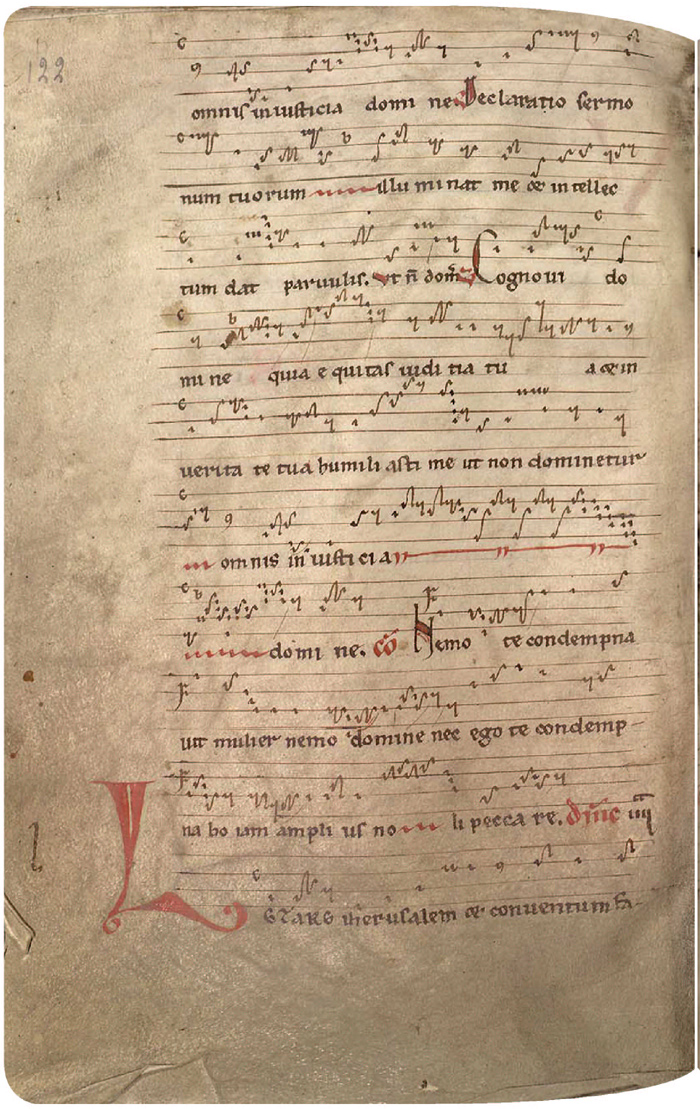 122
omnis iniusticia domi ne. Declaratio sermo
num tuorum illu minat me et in tellec
tum dat paruulis. Vt n̄ dom̄ Cognoui do
mi ne quia e quitas iudi tia tu a et in
uerita te tua humili asti me ut non dominetur
m omnis in iusti ci a
domi ne. cō Nemo te condempna
uit mulier nemo domine nec ego te condemp-
na bo iam ampli us no li pecca re. dn̄ic iiii
LETARE iherusalem et conuentum fa-